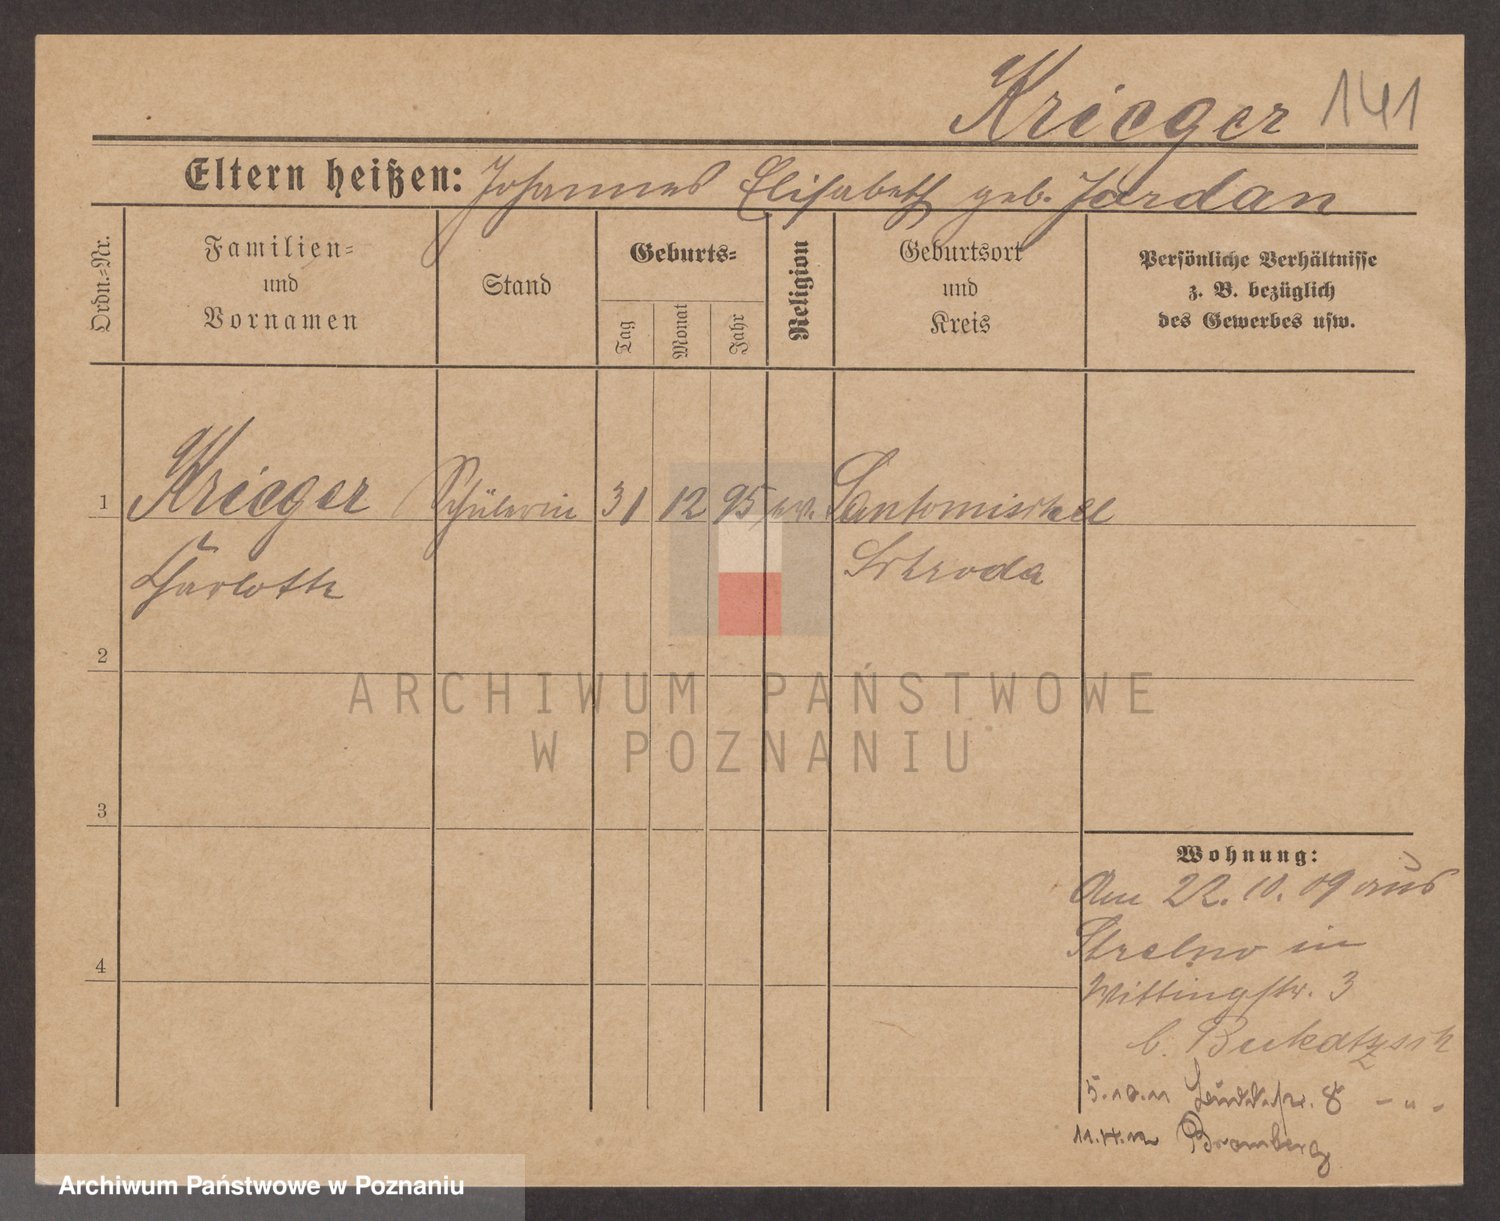 Krieger 141
Eltern heißen: Johannes Elisabeth geb. Jordan
Ordn.-Nr.
Familien-
und
Vornamen
Stand
Geburts-
Tag
Monat
Jahr
Religion
Geburtsort
und
Kreis
Persönliche Verhältnisse
z. B. bezüglich
des Gewerbes usw.
1 Krieger Schülerin 31 12 95 ev. Santomischel
Charlotte Schroda
2
3
4
Wohnung:
Am 22. 10. 09 aus
Strelno in
Wittingstr. 3
b. Bukatzsch
5.10.11 8 - " -
Bromberg
ARCHIWUM PAŃSTWOWE
W POZNANIU
Archiwum Państwowe w Poznaniu